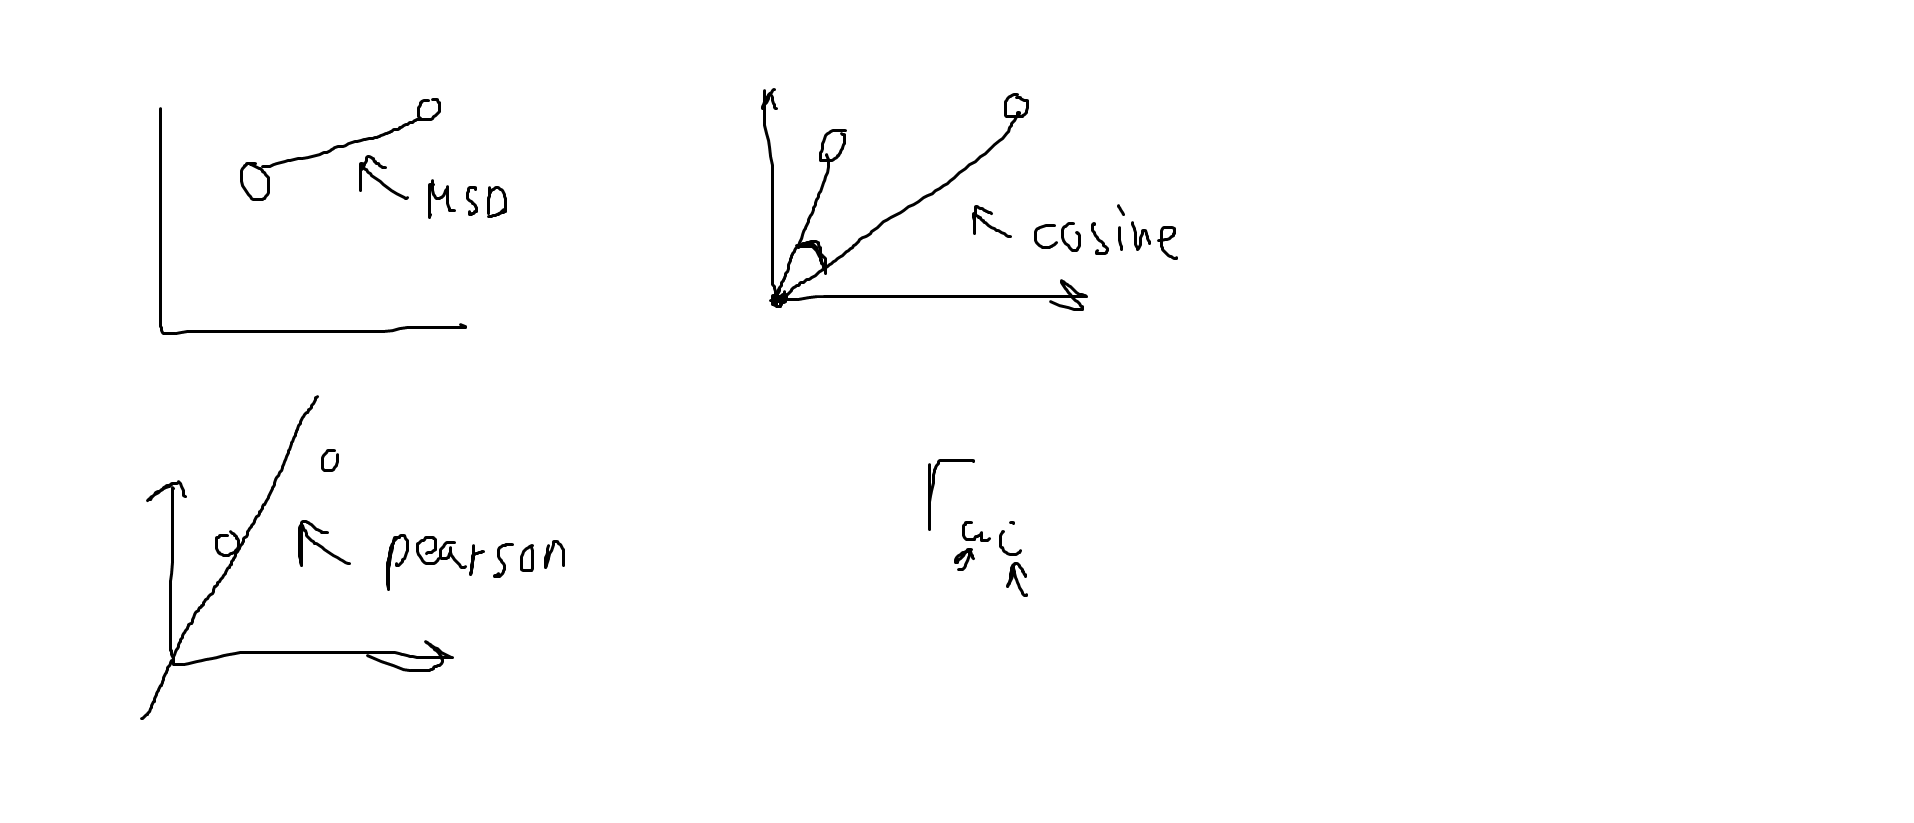 MSD
cosine
pearson
r ui